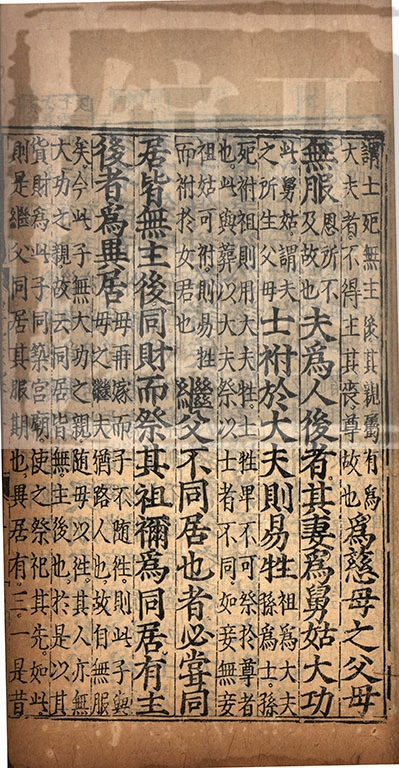 謂士死無主後其親屬有爲
大夫者不得主其喪尊故也
爲慈母之父母
無服
恩所不
及故也
夫爲人後者其妻爲舅姑大功
此舅姑謂夫
之所生父母
士祔於大夫則易牲
祖爲大夫
孫爲士孫
死祔祖則用大夫牲士牲卑不可祭於尊者
也此與葬以大夫祭以士者不同如妾無妾
祖姑可祔則易牲
而祔於女君也
繼父不同居也者必嘗同
居皆無主後同財而祭其祖禰爲同居有主
後者爲異居
母再嫁而子不隨往則此子與
母之繼夫猶路人也故自無服
矣今此子無大功之親隨母以往其人亦無
大功之親故云同居皆無主後也於是以其
貨財爲此子同築宮廟使之祭祀其先如此
則是繼父同居其服期也異居有三一是昔